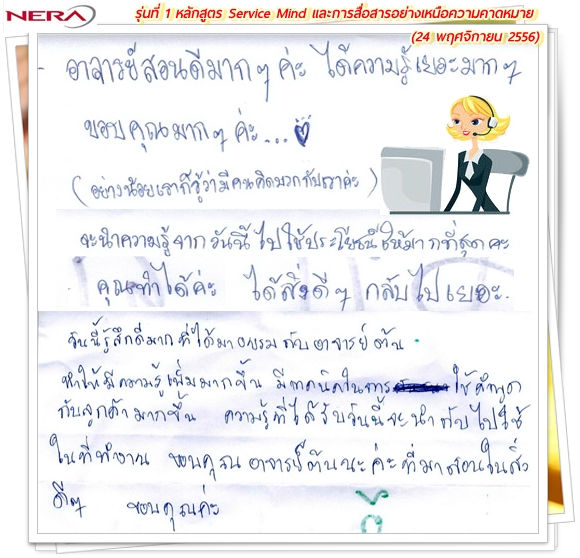 NERA
รุ่นที่ 1 หลักสูตร Service Mind และการสื่อสารอย่างเหนือความคาดหมาย
(24 พฤศจิกายน 2556)
- อาจารย์สอนดีมากๆ ค่ะ ได้ความรู้เยอะมากๆ
ขอบคุณมากๆ ค่ะ...
(อย่างน้อยเราก็รู้ว่ามีคนคิดบวกกับเราค่ะ)
จะนำความรู้จากวันนี้ไปใช้ประโยชน์ให้มากที่สุดคะ
คุณทำได้ค่ะ ได้สิ่งดีๆ กลับไปเยอะ.
วันนี้รู้สึกดีมากที่ได้มาอบรมกับอาจารย์ต้น
ทำให้มีความรู้เพิ่มมากขึ้น มีเทคนิคในการ ใช้คำพูด
กับลูกค้ามากขึ้น ความรู้ที่ได้รับวันนี้จะนำกลับไปใช้
ในที่ทำงาน ขอบคุณอาจารย์ต้นนะค่ะที่มาสอนในสิ่ง
ดีๆ ขอบคุณค่ะ